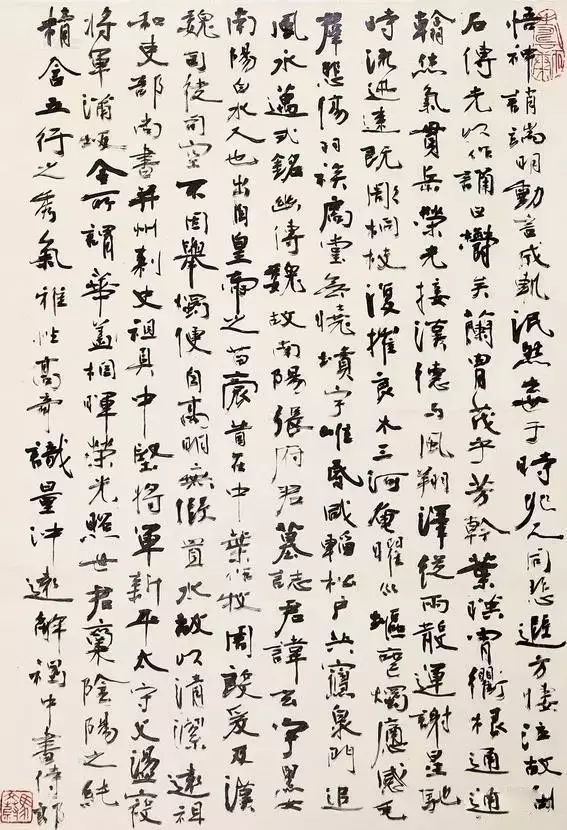 悟神端明動言成軌泯然去于時非人同悲遐方悽泣故刊
石傳光以作誦曰鬱矣蘭胄茂乎芳幹葉暎霄衢根通
翰然氣貫岳榮光接漢德与風翔澤從雨散運謝星馳
時流迅速既彫桐枝復摧良木三河奄曜燭感毛
羣悲傷羽族扃堂無曉墳宇唯昏咸韜松户共寢泉門追
風永邁式銘幽傳魏故南陽張府君墓誌君諱玄字黑女
南陽白水人也出自皇帝之苗裔昔在中葉作牧周殷爰及漢
魏司徒司空不因舉燭便自高明無假置水故以清潔遠祖
和吏部尚書并州刺史祖具中堅將軍新平太守父盪寇
將軍蒲坂令所謂華蓋相暉榮光照世君稟陰陽之純
精含五行之秀氣雅性高奇識量沖遠解褐中書侍郎